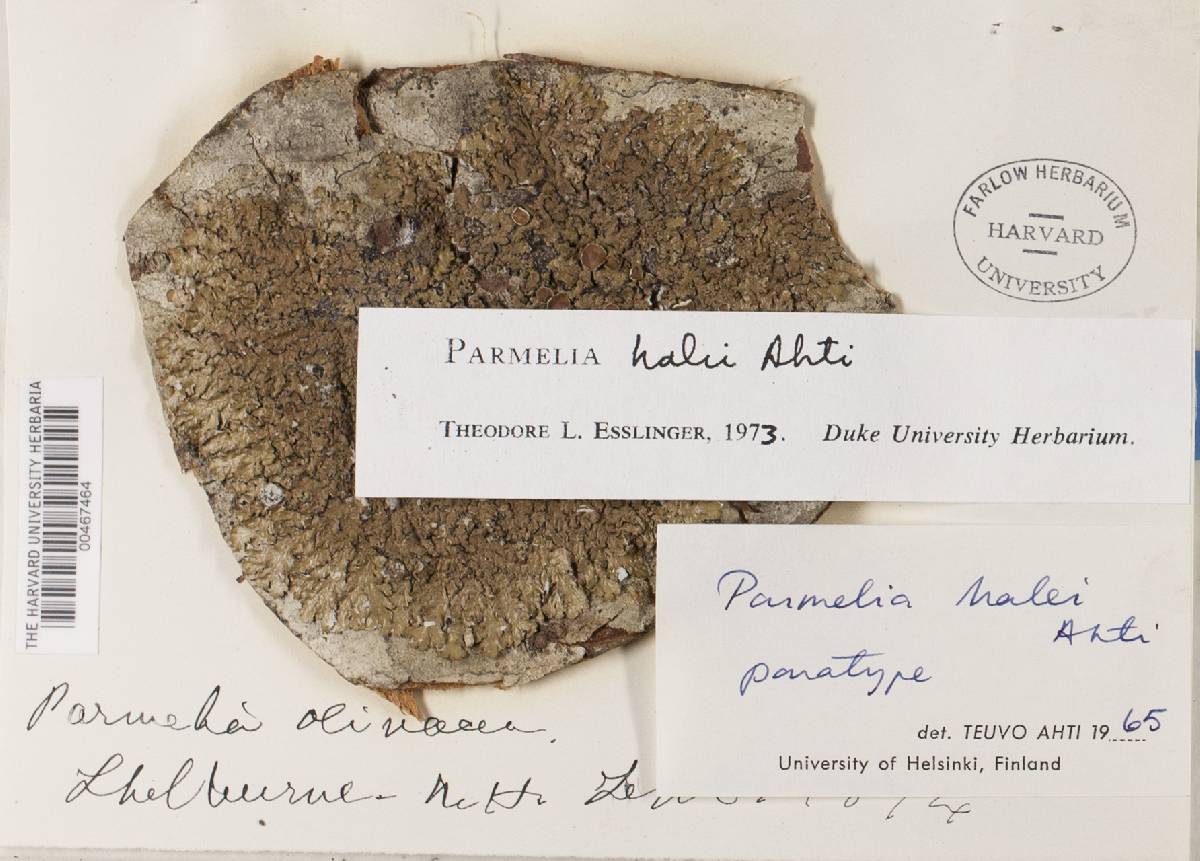 FARLOW HERBARIUM
HARVARD
UNIVERSITY
PARMELIA halii Ahti
THEODORE L. ESSLINGER, 1973. Duke University Herbarium.
THE HARVARD UNIVERSITY HERBARIA
00467464
Parmelia halei
Ahti
paratype
det. TEUVO AHTI 1965
University of Helsinki, Finland
Parmelia olivacea.
Shelburne - N. H.